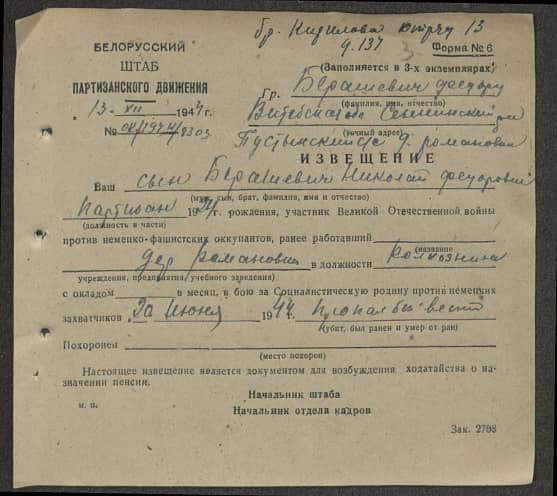 бр. Кирилова
9.137
3
БЕЛОРУССКИЙ
ШТАБ
ПАРТИЗАНСКОГО ДВИЖЕНИЯ
13. VII 1944 г.
№
Форма № 6
(Заполняется в 3-х экземплярах)
Гр. Берашевич Федору
(фамилия, имя, отчество)
Витебская обл.
(точный адрес)
Пустынский с/с д. Романовка
ИЗВЕЩЕНИЕ
Ваш сын Берашевич Николай Федорович
(муж, сын, брат, фамилия, имя и отчество)
партизан 19 г. рождения, участник Великой Отечественной войны
(должность в части)
против немецко-фашистских оккупантов, ранее работавший
(название
дер Романовка в должности колхозника
учреждения, предприятия, учебного заведения)
с окладом в месяц, в бою за Социалистическую родину против немецких
захватчиков 20 июня 1944 г. пропал без вести
(убит, был ранен и умер от ран)
Похоронен
(место похорон)
Настоящее извещение является документом для возбуждения ходатайства о на-
значении пенсии.
Начальник штаба
м. п.
Начальник отдела кадров
Зак. 2708